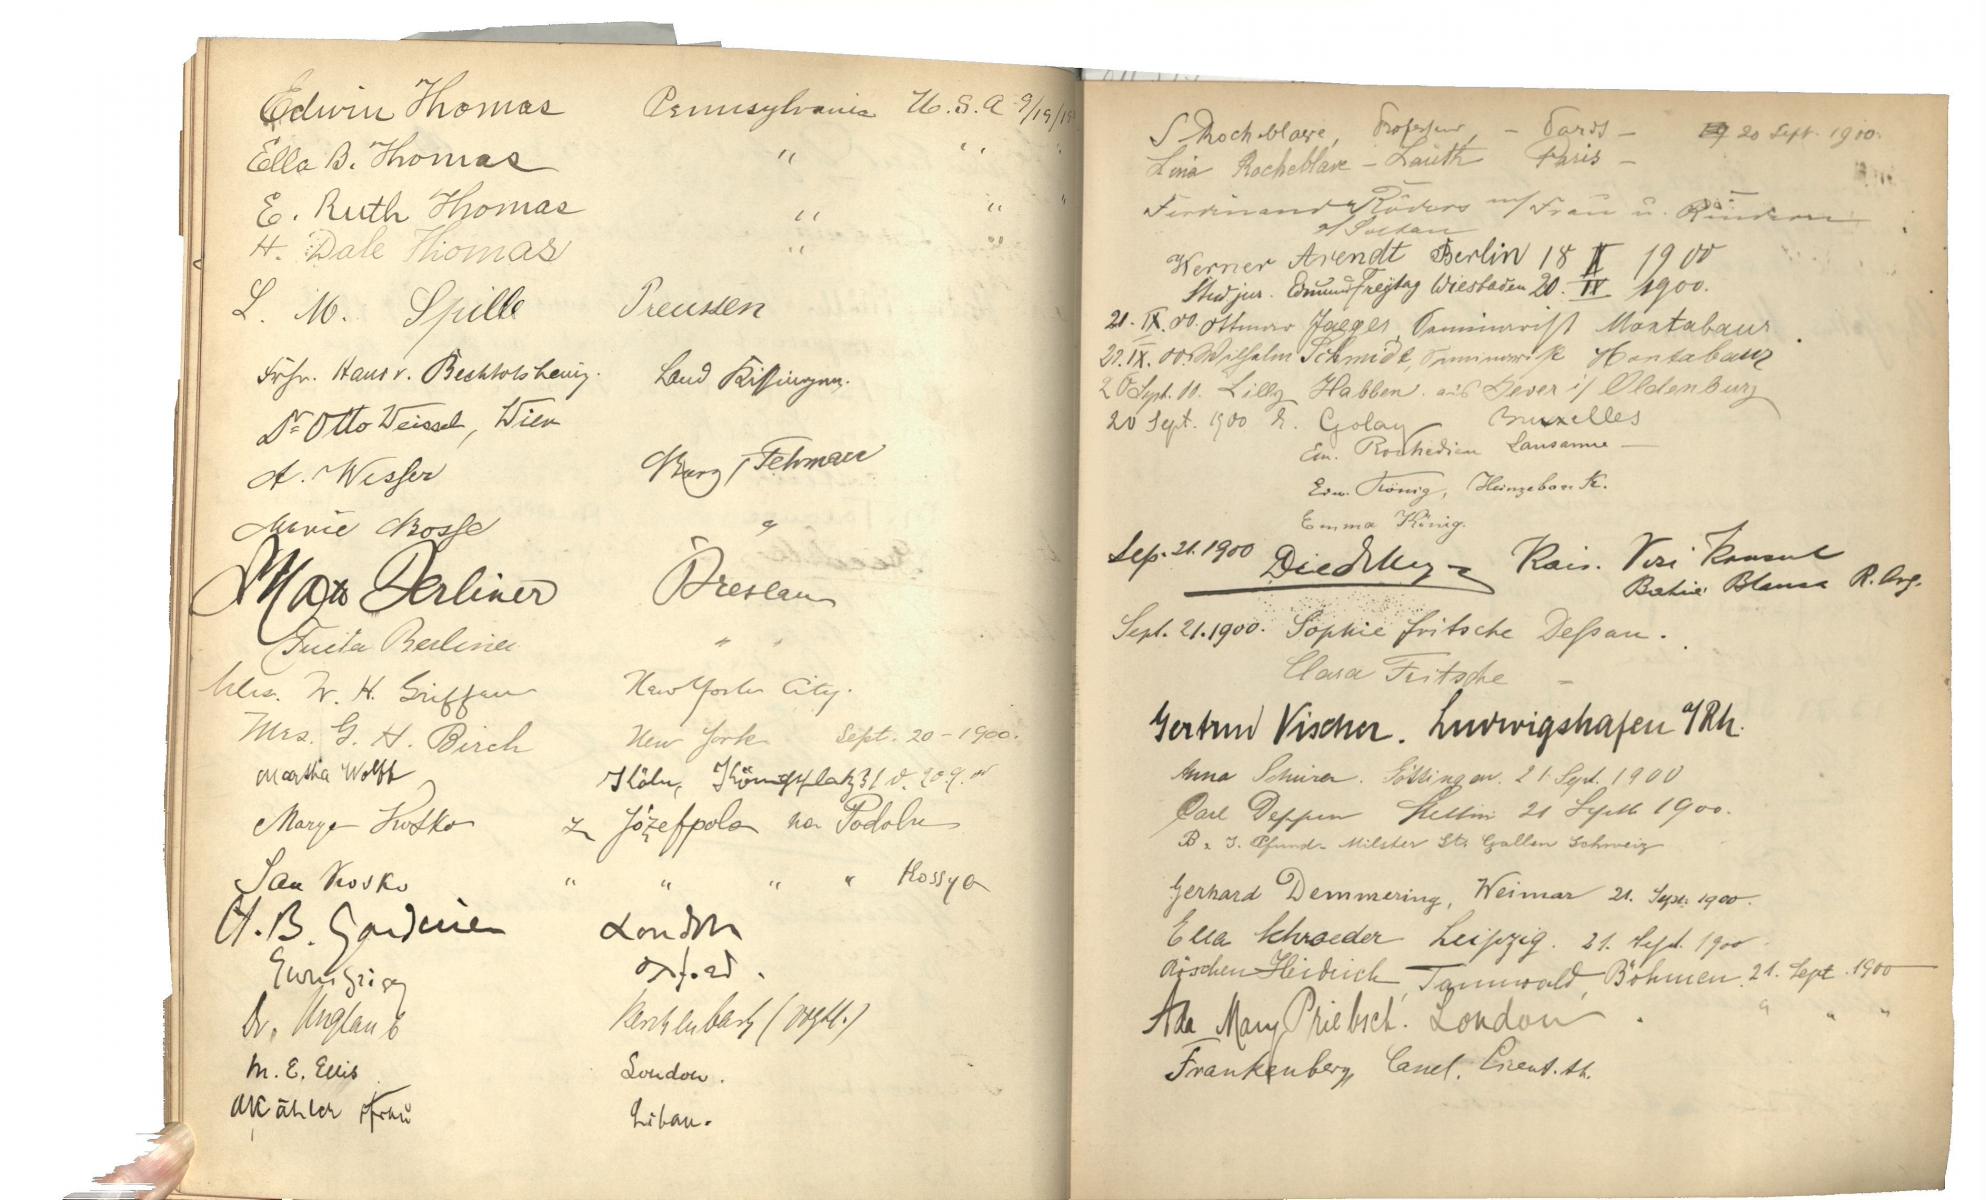 Edwin Thomas Pennsylvania U.S.A 9/19/19
Ella B. Thomas " "
E. Ruth Thomas " "
H. Dale Thomas " "
L. M. Spille Preussen
Frhr. Hans v. Bechtolsheim. Bad Kissingen.
Dr Otto Weissel, Wien
A. Wisser Burg / Fehmarn
Marie Bosse "
Max Berliner Breslau
Berliner " "
Mrs. W. H. Griffen New York City.
Mrs. G. H. Birch New York Sept. 20-1900.
Martha Wolff Köln, Königsplatz 31 d. 20 9. 00
Marya Kosko z Józefpola na Podolu
Jan Kosko " " " " Rossya
H. B. Gardiner London
Oxford.
Dr. Unglaub (Vogtl.)
M. E. Ellis London.
Kähler Frau Libau.
S Rocheblave, Professeur, - Paris - 20 Sept. 1900.
Lina Rocheblave - Lauth Paris -
Ferdinand Röders m/ Frau u. Kindern
a/ Soltau
Werner Arendt Berlin 18 IX 1900
Stud jur. Edmund Freytag Wiesbaden 20. IX 1900.
21. IX. 00. Ottmar Jaeger, Seminarist Montabaur.
21. IX. 00. Wilhelm Schmidt, Seminarist Montabaur
20 Sept. 00. Lilly Habben aus Jever i/ Oldenburg
20 Sept. 1900 E. Golay Bruxelles
Em. Rochedieu Lausanne -
Erw. König,
Emma König.
Sep. 21. 1900 Kais. Vizi Konsul
Bahia Blanca R. Arg.
Sept. 21. 1900. Sophie Fritsche Dessau.
Clara Fritsche -
Gertrud Vischer. Ludwigshafen a/Rh.
Anna Schürer. Göttingen. 21. Sept. 1900
Carl Deppen Stettin 21 Septb 1900.
B. J. Pfund- Milster St. Gallen Schweiz
Gerhard Demmering, Weimar 21. Sept. 1900.
Ella Schroeder Leipzig. 21. Sept. 1900.
Röschen Heidrich, Tannwald, Böhmen. 21. Sept. 1900
Ada Mary Priebsch. London . " " "
Frankenberg, Cand.